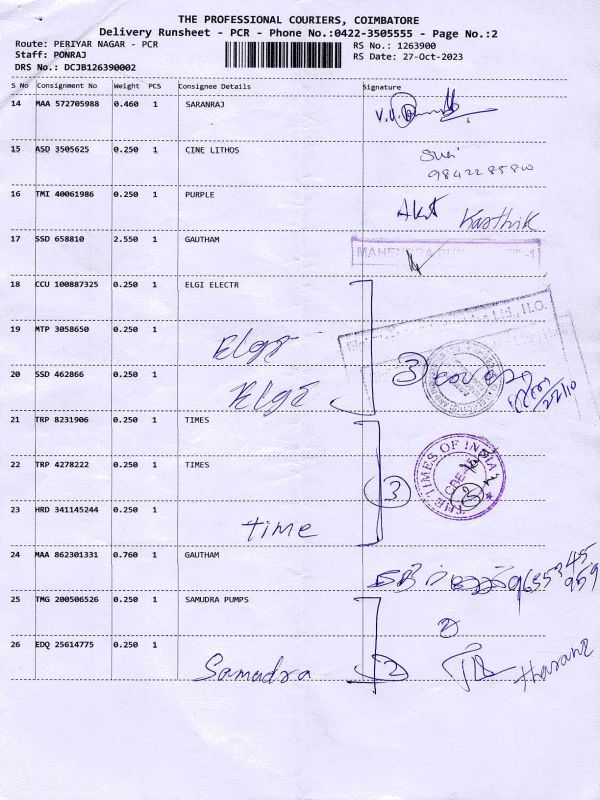 THE PROFESSIONAL COURIERS, COIMBATORE
Delivery Runsheet - PCR - Phone No.:0422-3505555 - Page No.:2
Route: PERIYAR NAGAR - PCR
RS No.: 1263900
Staff: PONRAJ
RS Date: 27-Oct-2023
DRS No.: DCJB126390002
S No Consignment No Weight PCS Consignee Details Signature
14 MAA 572705988 0.460 1 SARANRAJ
15 ASD 3505625 0.250 1 CINE LITHOS
9842285800
16 TMI 40061986 0.250 1 PURPLE
Karthik
17 SSD 658810 2.550 1 GAUTHAM
18 CCU 100887325 0.250 1 ELGI ELECTR
19 MTP 3058650 0.250 1
Elgi
20 SSD 462866 0.250 1
Elgi
3
21 TRP 8231906 0.250 1 TIMES
22 TRP 4278222 0.250 1 TIMES
3
THE TIMES OF INDIA
23 HRD 341145244 0.250 1
time
24 MAA 862301331 0.760 1 GAUTHAM
25 TMG 200506526 0.250 1 SAMUDRA PUMPS
26 EDQ 25614775 0.250 1
Samudra
2